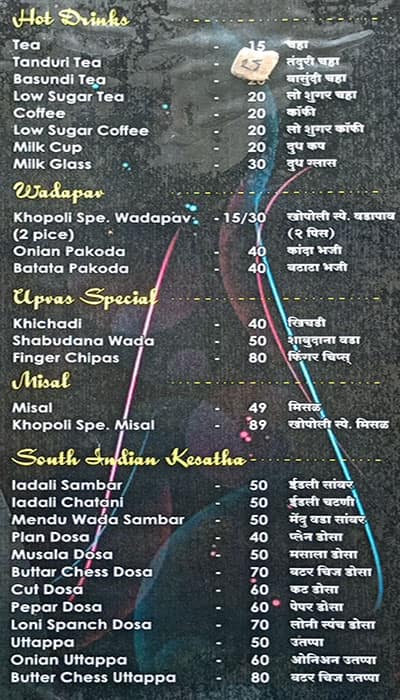 Hot Drinks
Tea - 15 चहा
Tanduri Tea - तंदुरी चहा
Basundi Tea - बासुंदी चहा
Low Sugar Tea - 20 लो शुगर चहा
Coffee - 20 कॉफी
Low Sugar Coffee - 20 लो शुगर कॉफी
Milk Cup - 20 दुध कप
Milk Glass - 30 दुध ग्लास
Wadapav
Khopoli Spe. Wadapav - 15/30 खोपोली स्पे. वडापाव
(2 pice) (२ पिस)
Onian Pakoda - 40 कांदा भजी
Batata Pakoda - 40 बटाटा भजी
Upvas Special
Khichadi - 40 खिचडी
Shabudana Wada - 50 शाबुदाना वडा
Finger Chipas - 80 फिंगर चिप्स्
Misal
Misal - 49 मिसळ
Khopoli Spe. Misal - 89 खोपोली स्पे. मिसळ
South Indian Kesatha
Iadali Sambar - 50 ईडली सांबर
Iadali Chatani - 50 ईडली चटणी
Mendu Wada Sambar - 50 मेंदु वडा सांबर
Plan Dosa - 40 प्लेन डोसा
Musala Dosa - 50 मसाला डोसा
Buttar Chess Dosa - 70 बटर चिज डोसा
Cut Dosa - 60 कट डोसा
Pepar Dosa - 60 पेपर डोसा
Loni Spanch Dosa - 70 लोनी स्पंच डोसा
Uttappa - 50 उतप्पा
Onian Uttappa - 60 ओनिअन उतप्पा
Butter Chess Uttappa - 80 बटर चिज उतप्पा